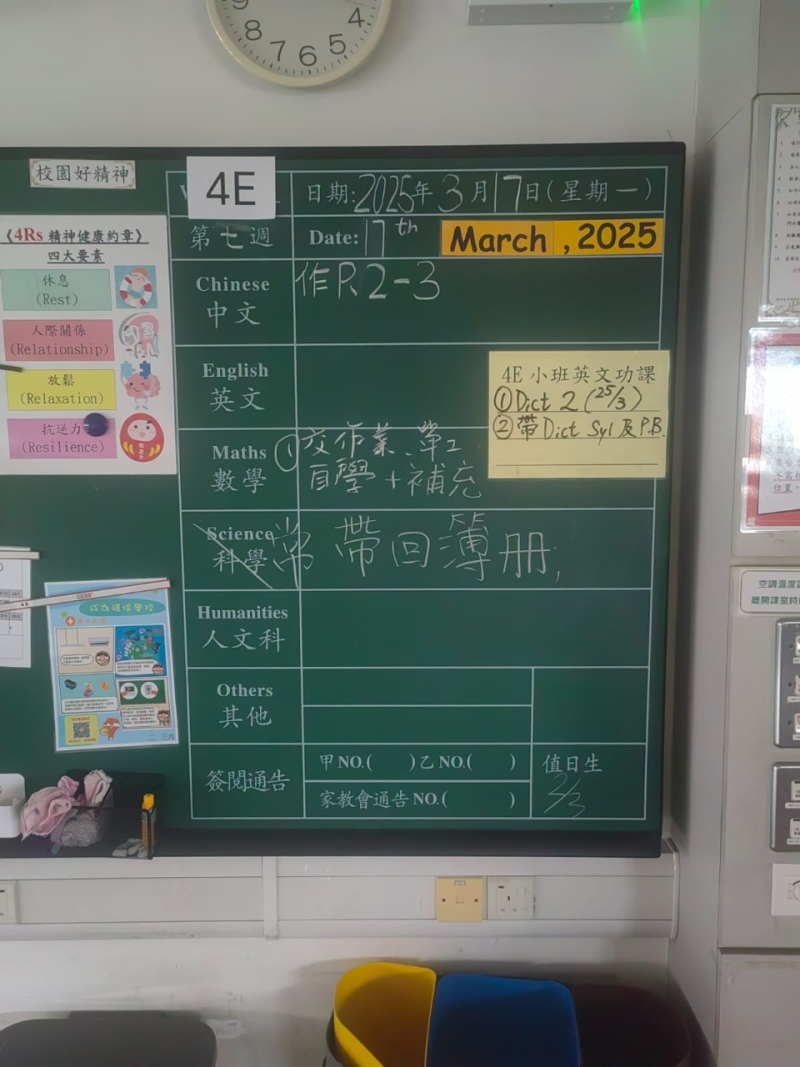 9
8 4
7 6 5
校園好精神
4E
日期:2025年3月17日(星期一)
第七週
Date: 17th March ,2025
《4Rs 精神健康約章》
四大要素
休息
(Rest)
人際關係
(Relationship)
放鬆
(Relaxation)
抗逆力
(Resilience)
Chinese
中文
作P.2-3
English
英文
4E 小班英文功課
①Dict 2 (25/3)
②帶 Dict Syl 及 P.B.
Maths
數學
①交作業、單工
自學+補充
Science
科學
常 帶回簿册;
Humanities
人文科
Others
其他
簽閱通告
甲NO.( )乙NO.( )
家教會通告NO.( )
值日生
2/3
成為環保學校
二、三月
空調溫度
離開課室時